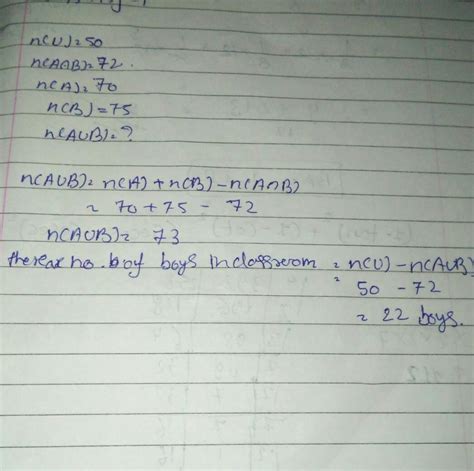 n(U)=50
n(A∩B)=72.
n(A)=70
n(B)=75
n(A∪B)=?
n(A∪B)= n(A)+n(B)-n(A∩B)
= 70+75-72
n(A∪B)= 73
no. boys in classroom = n(U)-n(A∪B)
= 50-72
= 22 boys.